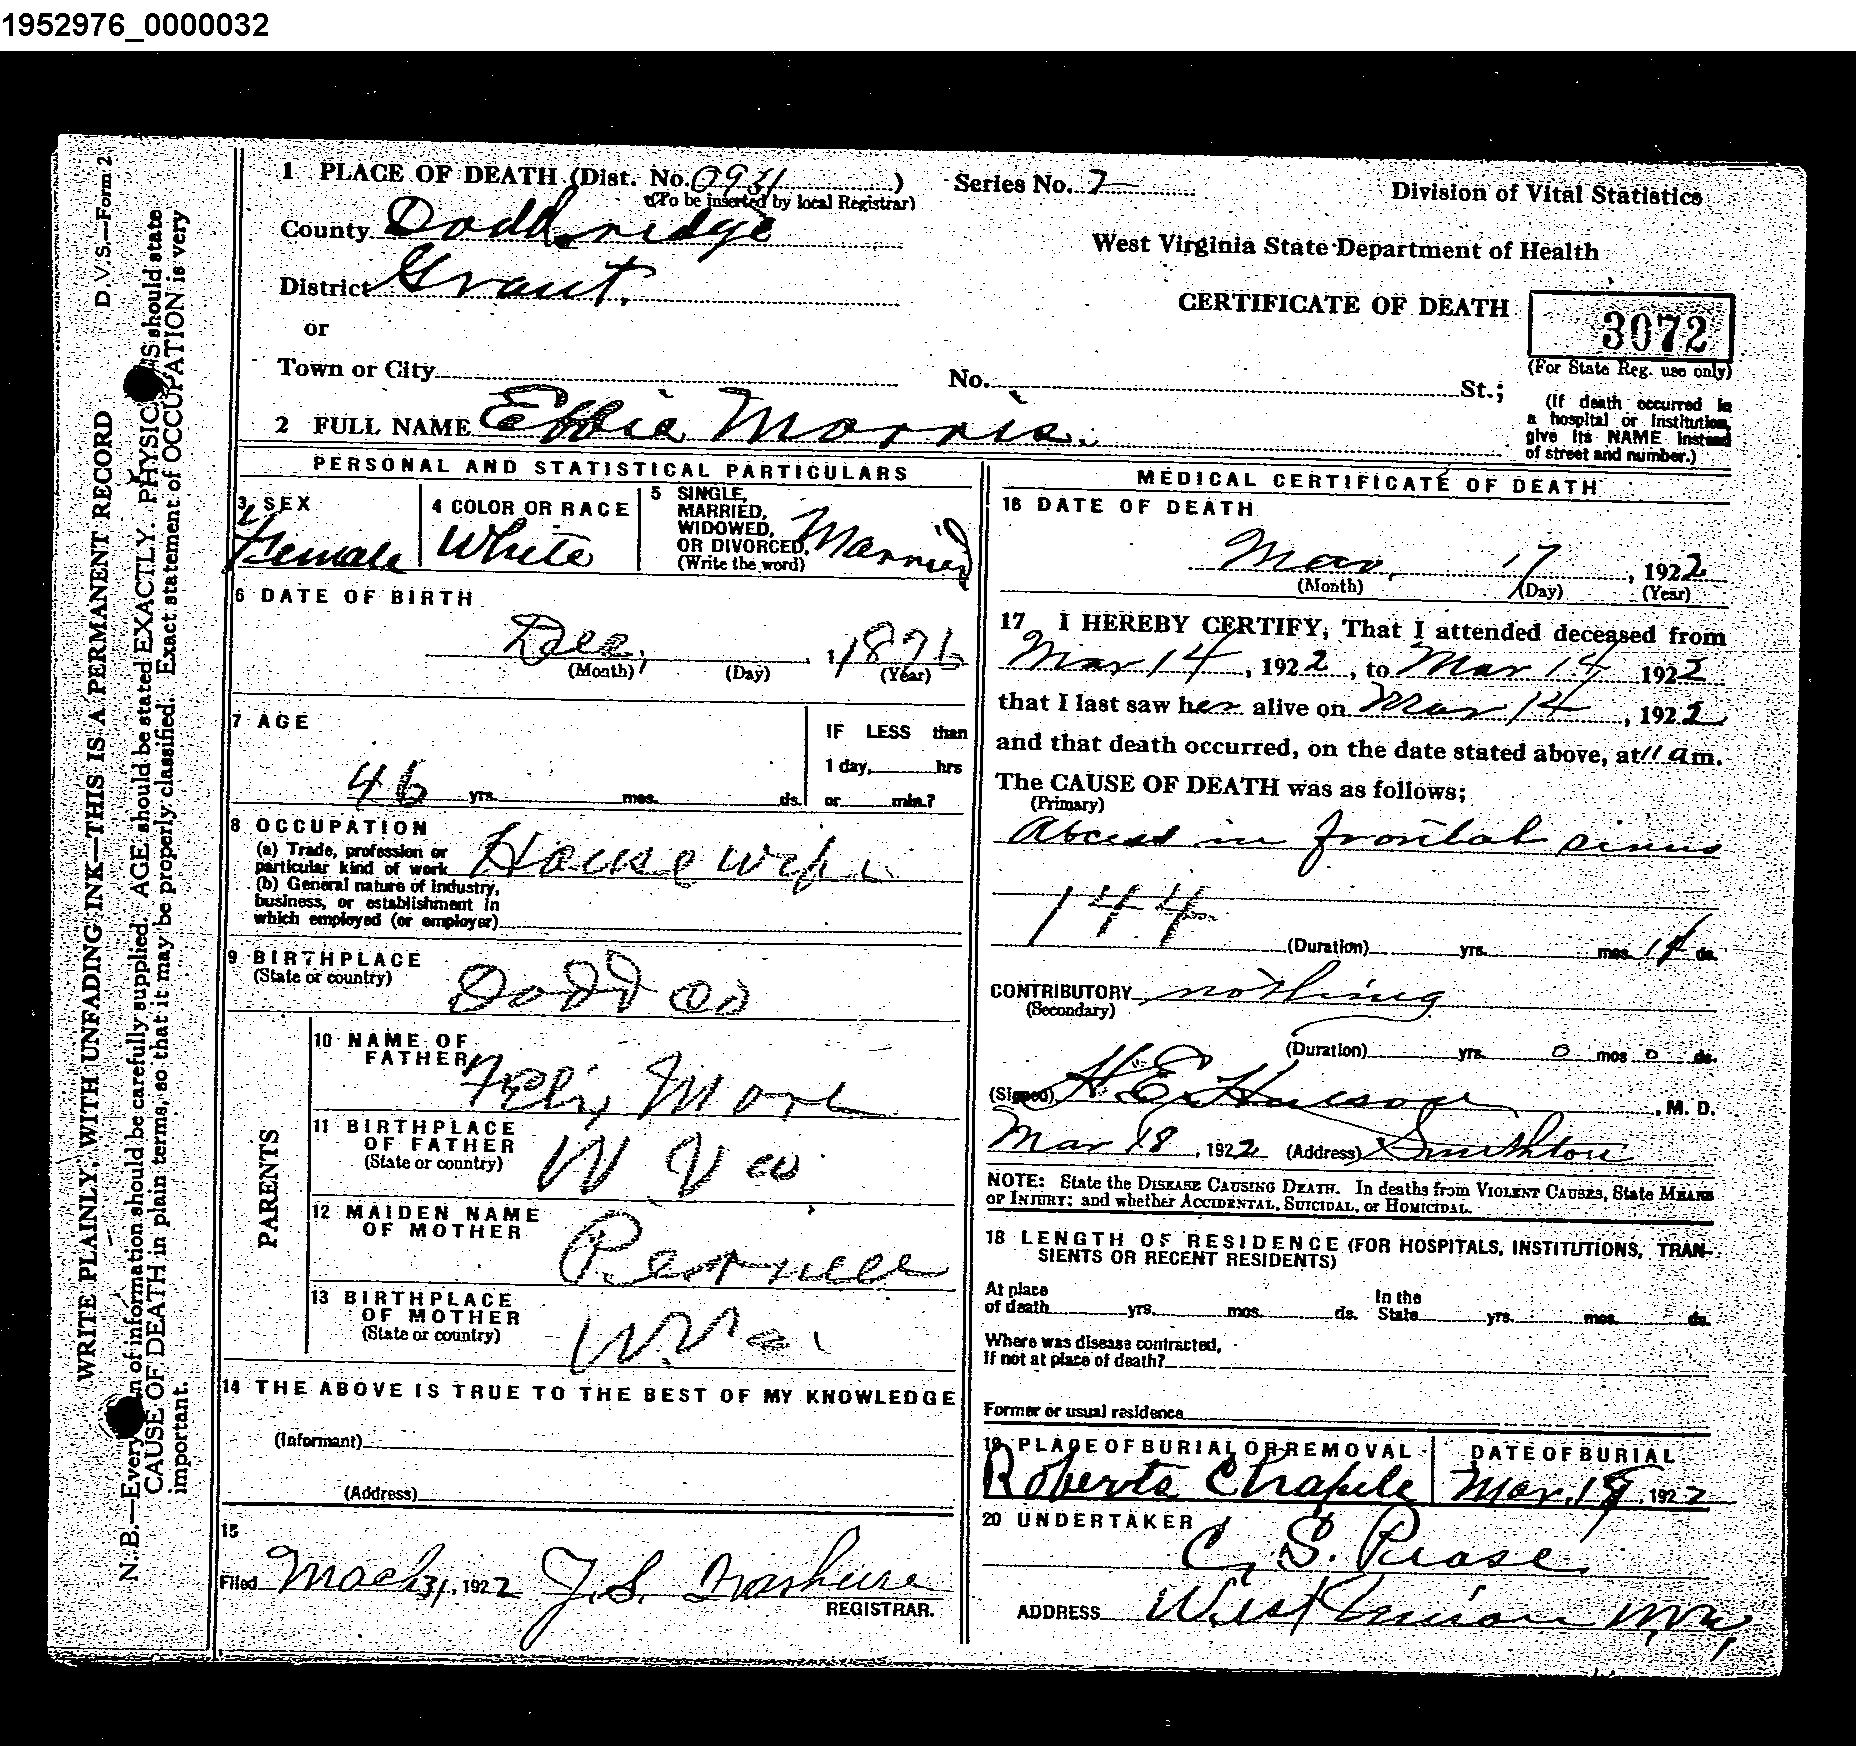 1952976_0000032
1 PLACE OF DEATH (Dist. No. 0951) Series No. 7
(To be inserted by local Registrar)
Division of Vital Statistics
County Doddridge
West Virginia State Department of Health
District Grant.
CERTIFICATE OF DEATH
3072
(For State Reg. use only)
or
Town or City No. St.;
(If death occurred in
a hospital or institution,
give its NAME instead
of street and number.)
2 FULL NAME Effie Morris.
PERSONAL AND STATISTICAL PARTICULARS
3 SEX
Female
4 COLOR OR RACE
White
5 SINGLE,
MARRIED,
WIDOWED,
OR DIVORCED,
(Write the word)
Married
6 DATE OF BIRTH
Dec, , 1876
(Month) (Day) (Year)
7 AGE
46 yrs. mos. ds.
IF LESS than
1 day, hrs
or min.?
8 OCCUPATION
(a) Trade, profession or
particular kind of work House wife
(b) General nature of industry,
business, or establishment in
which employed (or employer)
9 BIRTHPLACE
(State or country)
Dodd Co
PARENTS
10 NAME OF
FATHER
Felix More
11 BIRTHPLACE
OF FATHER
(State or country)
W Va
12 MAIDEN NAME
OF MOTHER
13 BIRTHPLACE
OF MOTHER
(State or country)
W.Va
14 THE ABOVE IS TRUE TO THE BEST OF MY KNOWLEDGE
(Informant)
(Address)
15
Filed 31, 1922 J. S.
REGISTRAR.
MEDICAL CERTIFICATE OF DEATH
16 DATE OF DEATH
Mar, 17, 1922
(Month) (Day) (Year)
17 I HEREBY CERTIFY, That I attended deceased from
Mar 14, 1922, to Mar 14 1922
that I last saw her alive on Mar 14, 1922
and that death occurred, on the date stated above, at 11 am.
The CAUSE OF DEATH was as follows;
(Primary)
Abcess in frontal sinus
144
(Duration) yrs. mos. 14 ds.
CONTRIBUTORY nothing
(Secondary)
(Duration) yrs. 0 mos 0 ds.
(Signed) H. E. , M. D.
Mar 18, 1922 (Address) Smithton
NOTE: State the DISEASE CAUSING DEATH. In deaths from VIOLENT CAUSES, State MEANS
OF INJURY; and whether ACCIDENTAL, SUICIDAL, or HOMICIDAL.
18 LENGTH OF RESIDENCE (FOR HOSPITALS, INSTITUTIONS, TRAN-
SIENTS OR RECENT RESIDENTS)
At place
of death yrs. mos. ds.
In the
State yrs. mos. ds.
Where was disease contracted,
If not at place of death?
Former or usual residence
19 PLACE OF BURIAL OR REMOVAL
Roberts Chapele
DATE OF BURIAL
Mar. 19, 1922
20 UNDERTAKER
C, S. Pease
ADDRESS West Union W.Va,
WRITE PLAINLY, WITH UNFADING INK—THIS IS A PERMANENT RECORD D.V.S.—Form 2
N. B.—Every of information should be carefully supplied. AGE should be stated EXACTLY. PHYSIC S should state
CAUSE OF DEATH in plain terms, so that it may be properly classified. Exact statement of OCCUPATION is very
important.